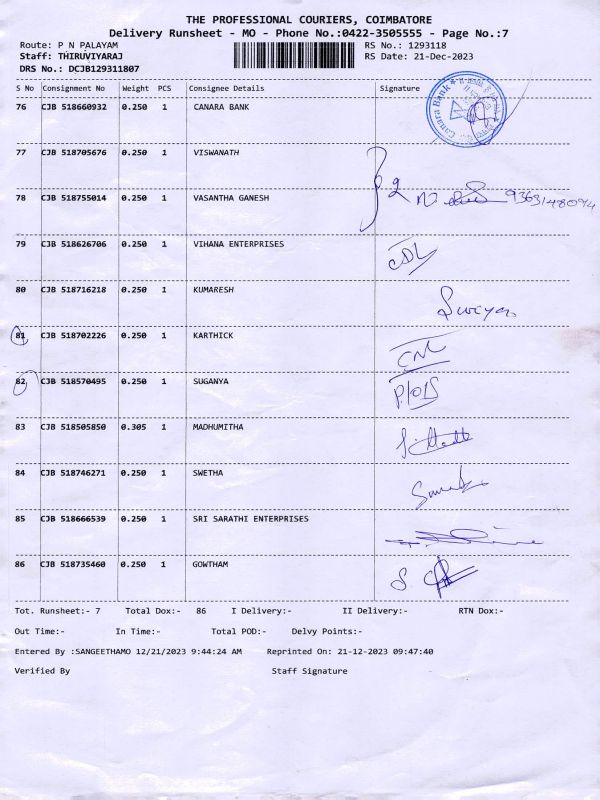 THE PROFESSIONAL COURIERS, COIMBATORE
Delivery Runsheet - MO - Phone No.:0422-3505555 - Page No.:7
Route: P N PALAYAM RS No.: 1293118
Staff: THIRUVIYARAJ RS Date: 21-Dec-2023
DRS No.: DCJB129311807
S No Consignment No Weight PCS Consignee Details Signature
76 CJB 518660932 0.250 1 CANARA BANK Canara Bank
77 CJB 518705676 0.250 1 VISWANATH
78 CJB 518755014 0.250 1 VASANTHA GANESH
79 CJB 518626706 0.250 1 VIHANA ENTERPRISES
80 CJB 518716218 0.250 1 KUMARESH
81 CJB 518702226 0.250 1 KARTHICK
82 CJB 518570495 0.250 1 SUGANYA
83 CJB 518505850 0.305 1 MADHUMITHA
84 CJB 518746271 0.250 1 SWETHA
85 CJB 518666539 0.250 1 SRI SARATHI ENTERPRISES
86 CJB 518735460 0.250 1 GOWTHAM
Tot. Runsheet:- 7 Total Dox:- 86 I Delivery:- II Delivery:- RTN Dox:-
Out Time:- In Time:- Total POD:- Delvy Points:-
Entered By :SANGEETHAMO 12/21/2023 9:44:24 AM Reprinted On: 21-12-2023 09:47:40
Verified By Staff Signature